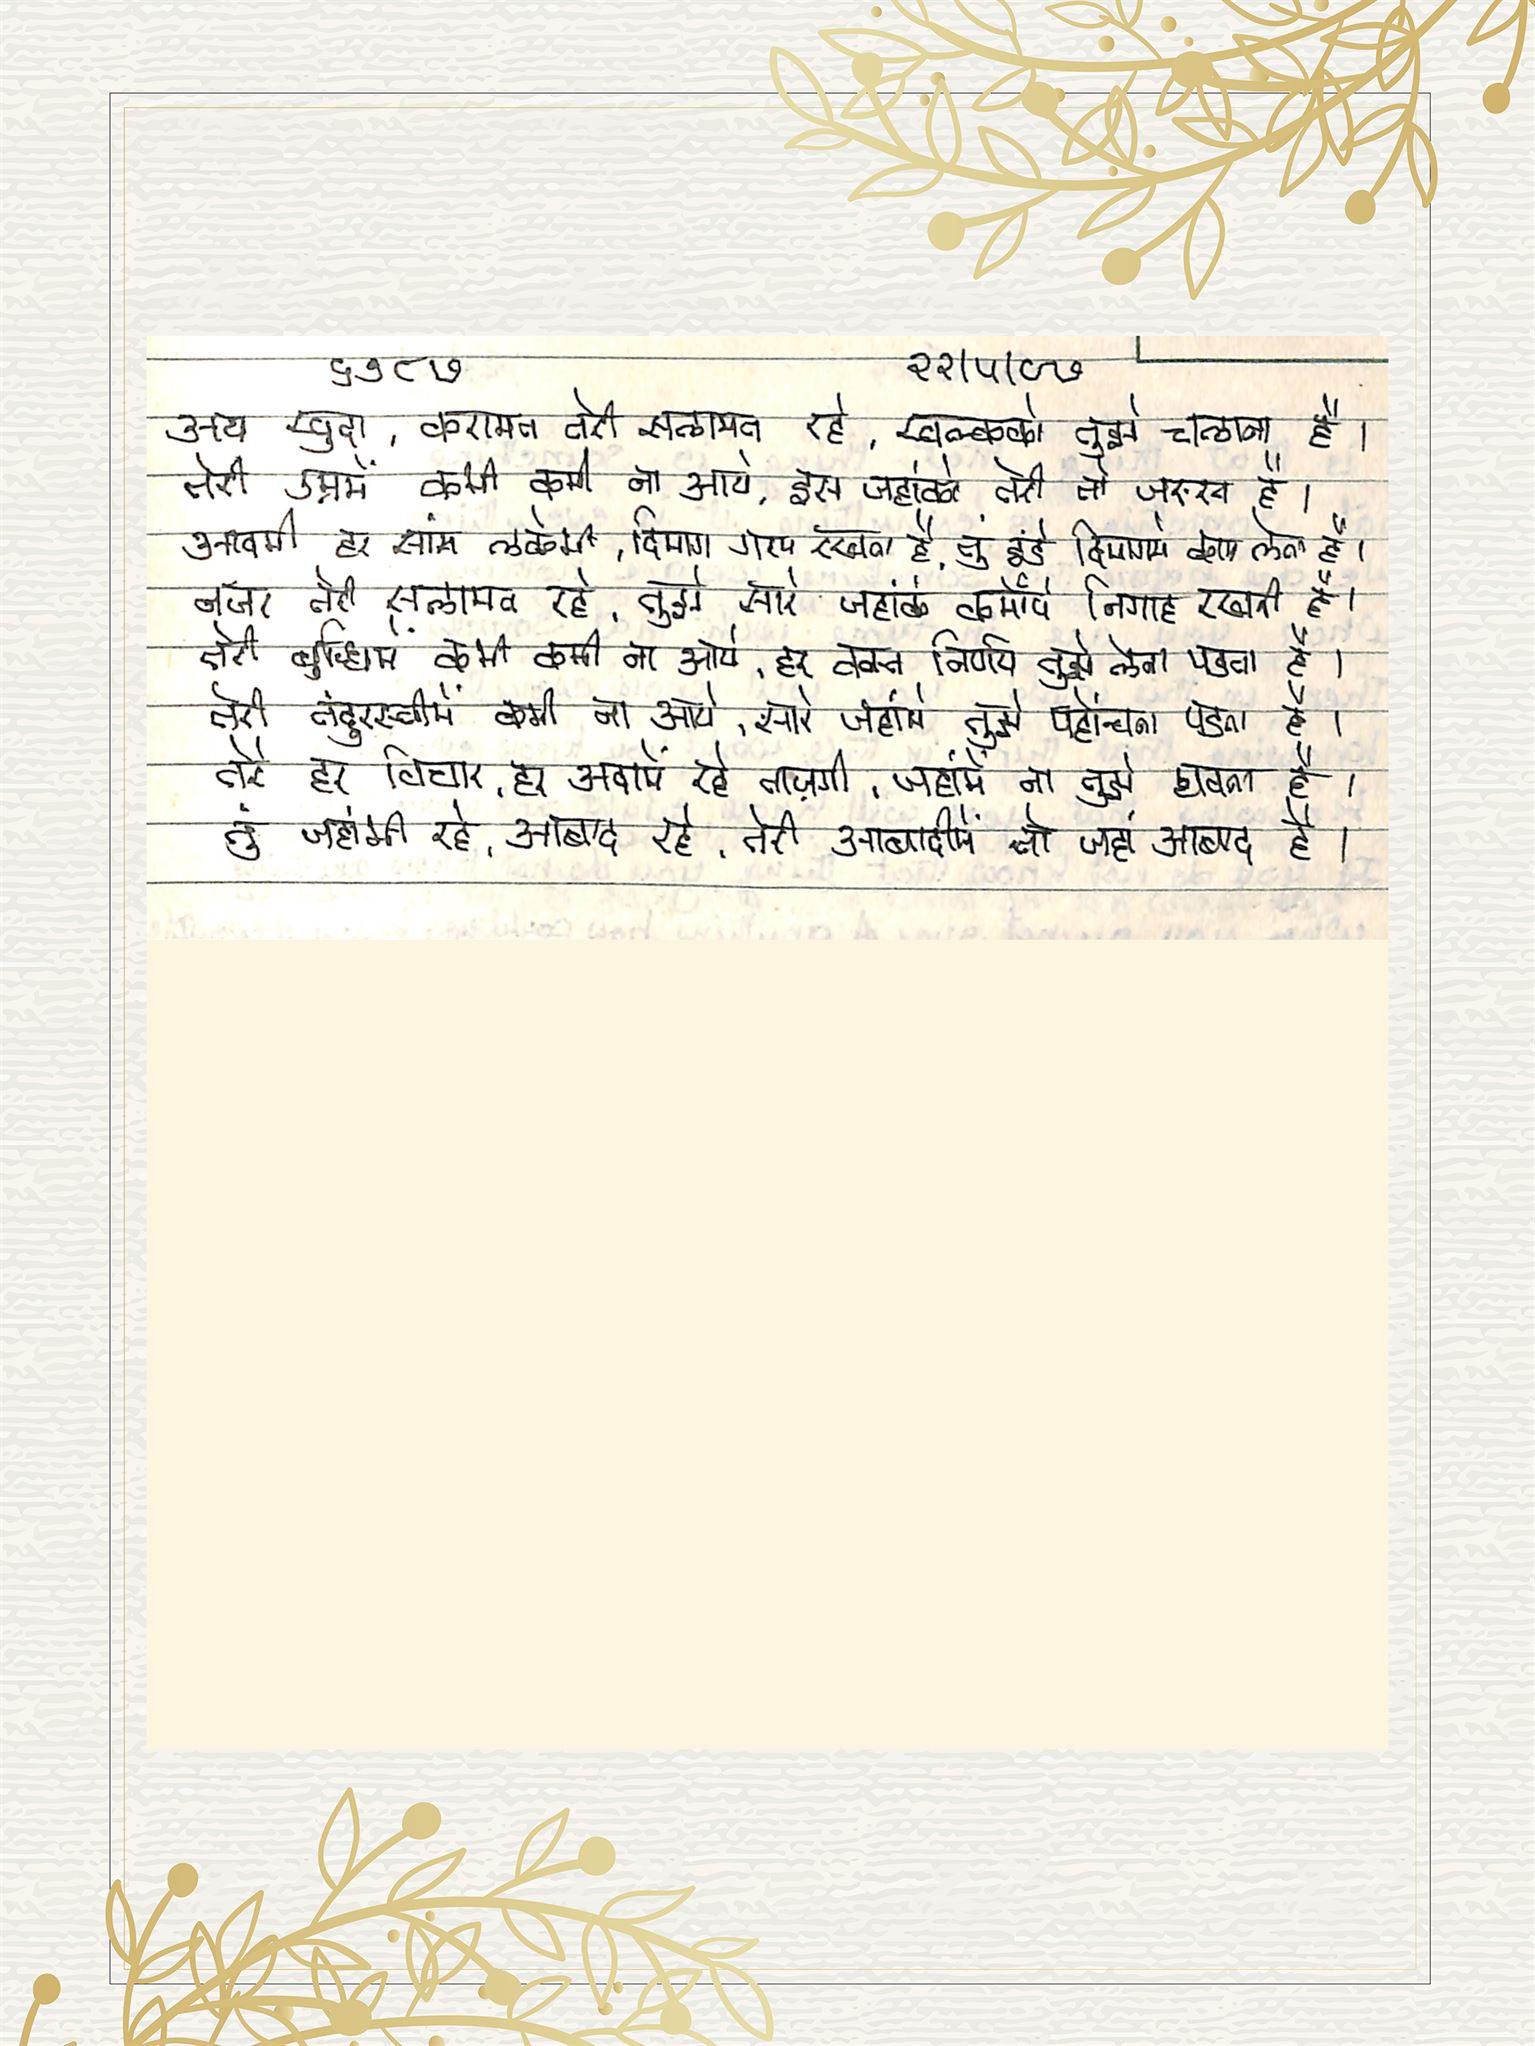 ६७८७ २२/५/८७
अय खुदा, करामत तेरी सलामत रहे, खल्कको तुझे चलाना है।
तेरी उम्रमें कभी कमी ना आये, इस जहांको तेरी तो जरूरत है।
आदमी हर सांस लेकेभी, दिमाग गरम रखता है, तुं ठंडे दिमागसे काम लेता है।
नजर तेरी सलामत रहे, तुझे सारे जहांके कर्मोंपे निगाह रखनी है।
तेरी बुध्धिमें कभी कमी ना आये, हर वक्त निर्णय तुझे लेना पडता है।
तेरी तंदुरस्तीमें कमी ना आये, सारे जहांमें तुझे पहोंचना पडता है।
तेरे हर विचार, हर अदामें रहे ताज़गी, जहांमें ना तुझे थकना है।
तुं जहांभी रहे, आबाद रहे, तेरी आबादीमें तो जहां आबाद है।